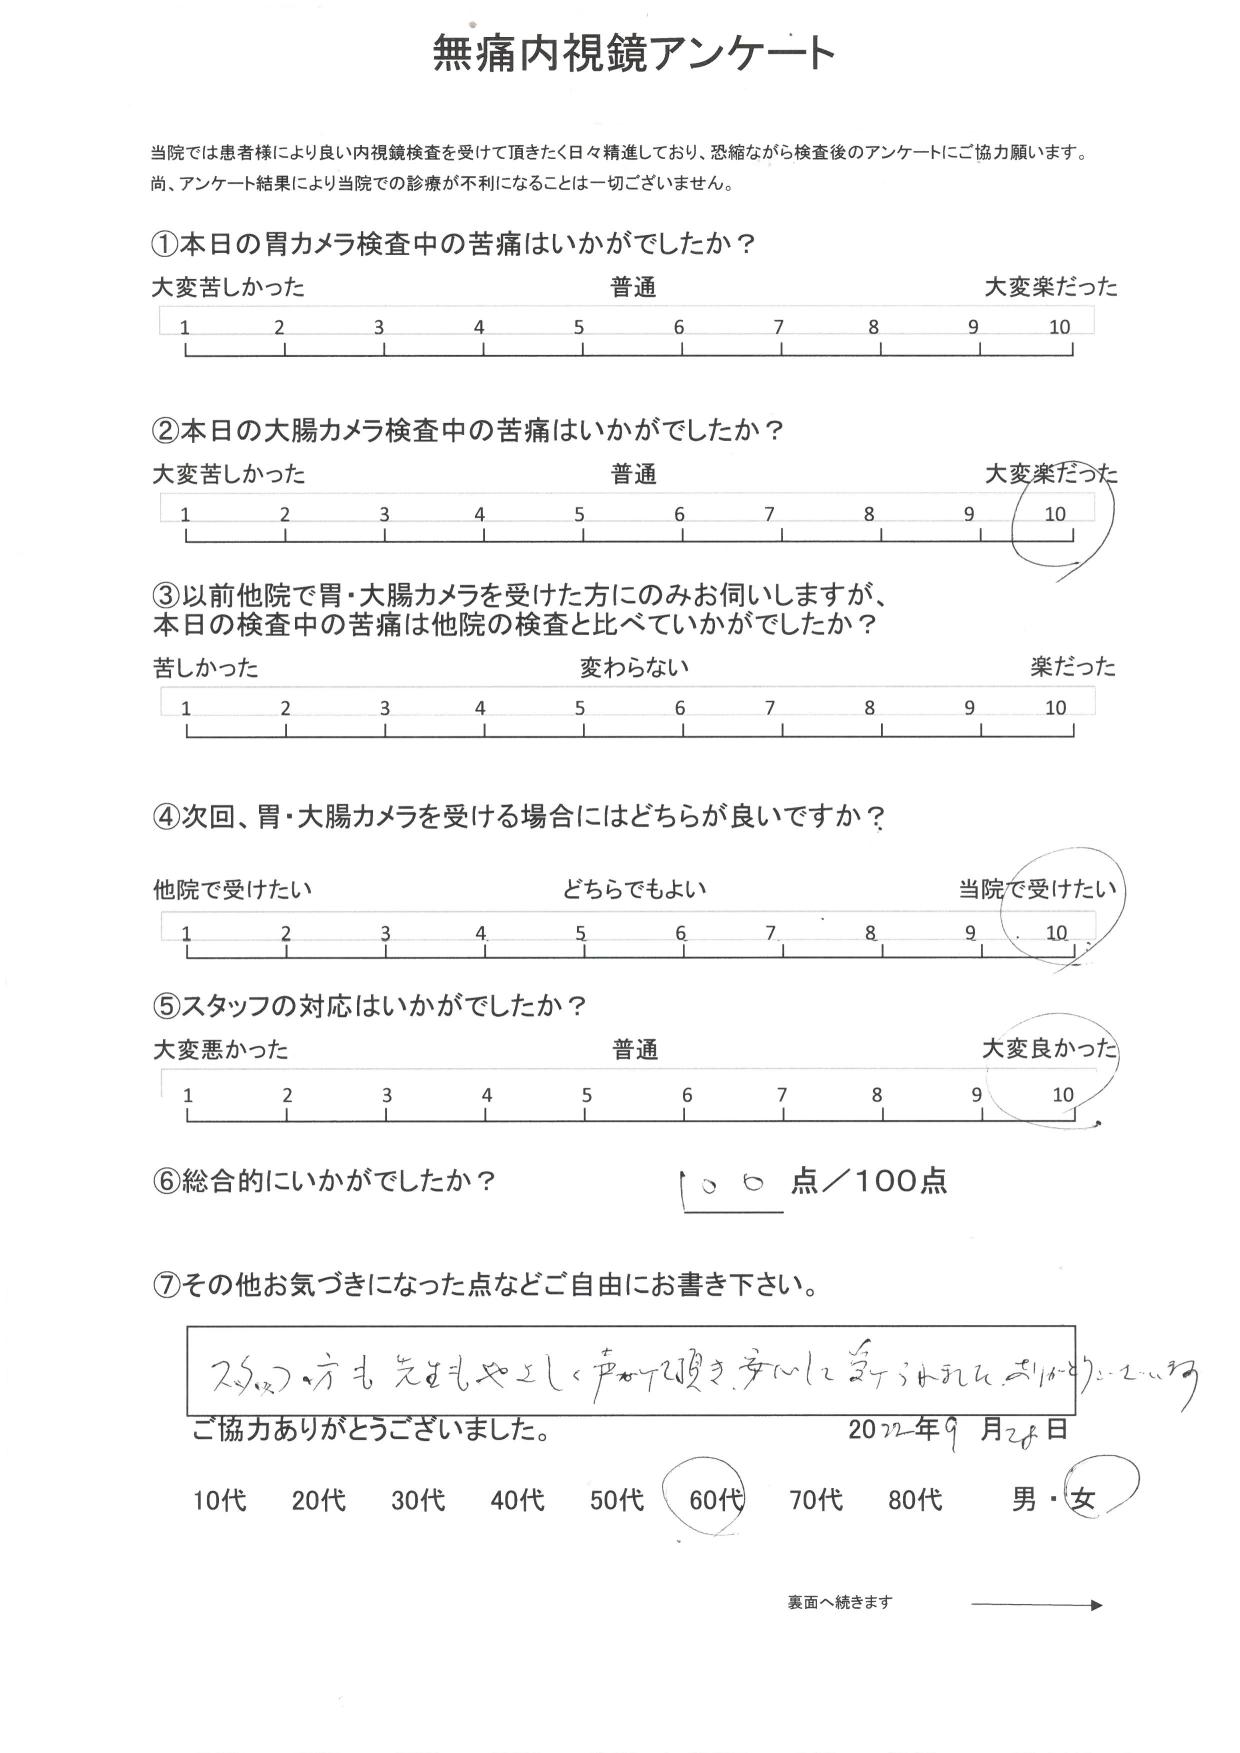 無痛内視鏡アンケート
当院では患者様により良い内視鏡検査を受けて頂きたく日々精進しており、恐縮ながら検査後のアンケートにご協力願います。
尚、アンケート結果により当院での診療が不利になることは一切ございません。
①本日の胃カメラ検査中の苦痛はいかがでしたか？
大変苦しかった 普通 大変楽だった
1 2 3 4 5 6 7 8 9 10
②本日の大腸カメラ検査中の苦痛はいかがでしたか？
大変苦しかった 普通 大変楽だった
1 2 3 4 5 6 7 8 9 10
③以前他院で胃・大腸カメラを受けた方にのみお伺いしますが、
本日の検査中の苦痛は他院の検査と比べていかがでしたか？
苦しかった 変わらない 楽だった
1 2 3 4 5 6 7 8 9 10
④次回、胃・大腸カメラを受ける場合にはどちらが良いですか？
他院で受けたい どちらでもよい 当院で受けたい
1 2 3 4 5 6 7 8 9 10
⑤スタッフの対応はいかがでしたか？
大変悪かった 普通 大変良かった
1 2 3 4 5 6 7 8 9 10
⑥総合的にいかがでしたか？ 100 点／100点
⑦その他お気づきになった点などご自由にお書き下さい。
スタッフの方も先生もやさしく声かけて頂き、安心して受けられました。ありがとうございます
ご協力ありがとうございました。 2022年9月28日
10代 20代 30代 40代 50代 60代 70代 80代 男・女
裏面へ続きます